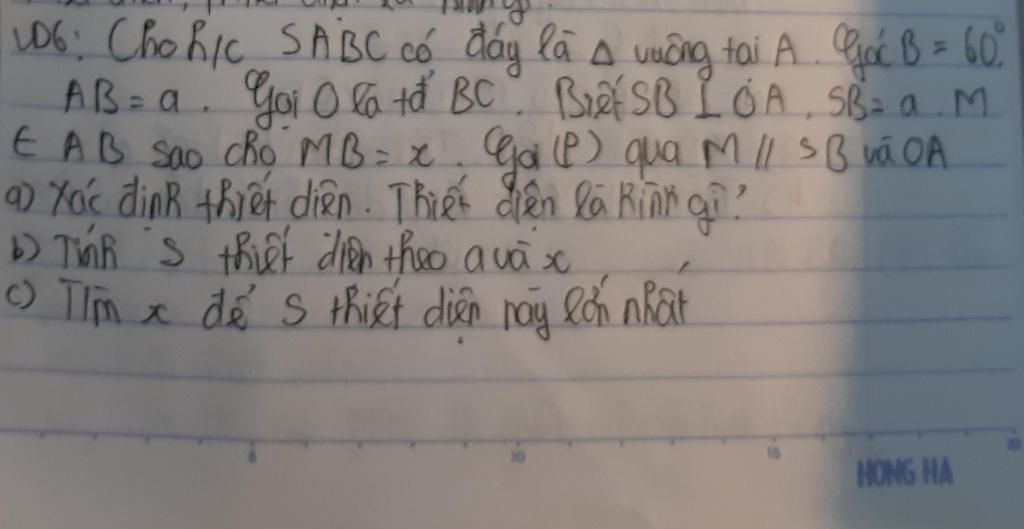 VD6: Cho h/c SABC có đáy là Δ vuông tại A. Góc B = 60°.
AB = a. Gọi O là tđ BC. Biết SB ⊥ OA, SB = a. M
∈ AB sao cho MB = x. Gọi (P) qua M // SB và OA
a) Xác định thiết diện. Thiết diện là hình gì?
b) Tính S thiết diện theo a và x
c) Tìm x để S thiết diện này lớn nhất
8 10 15 20
HONG HA